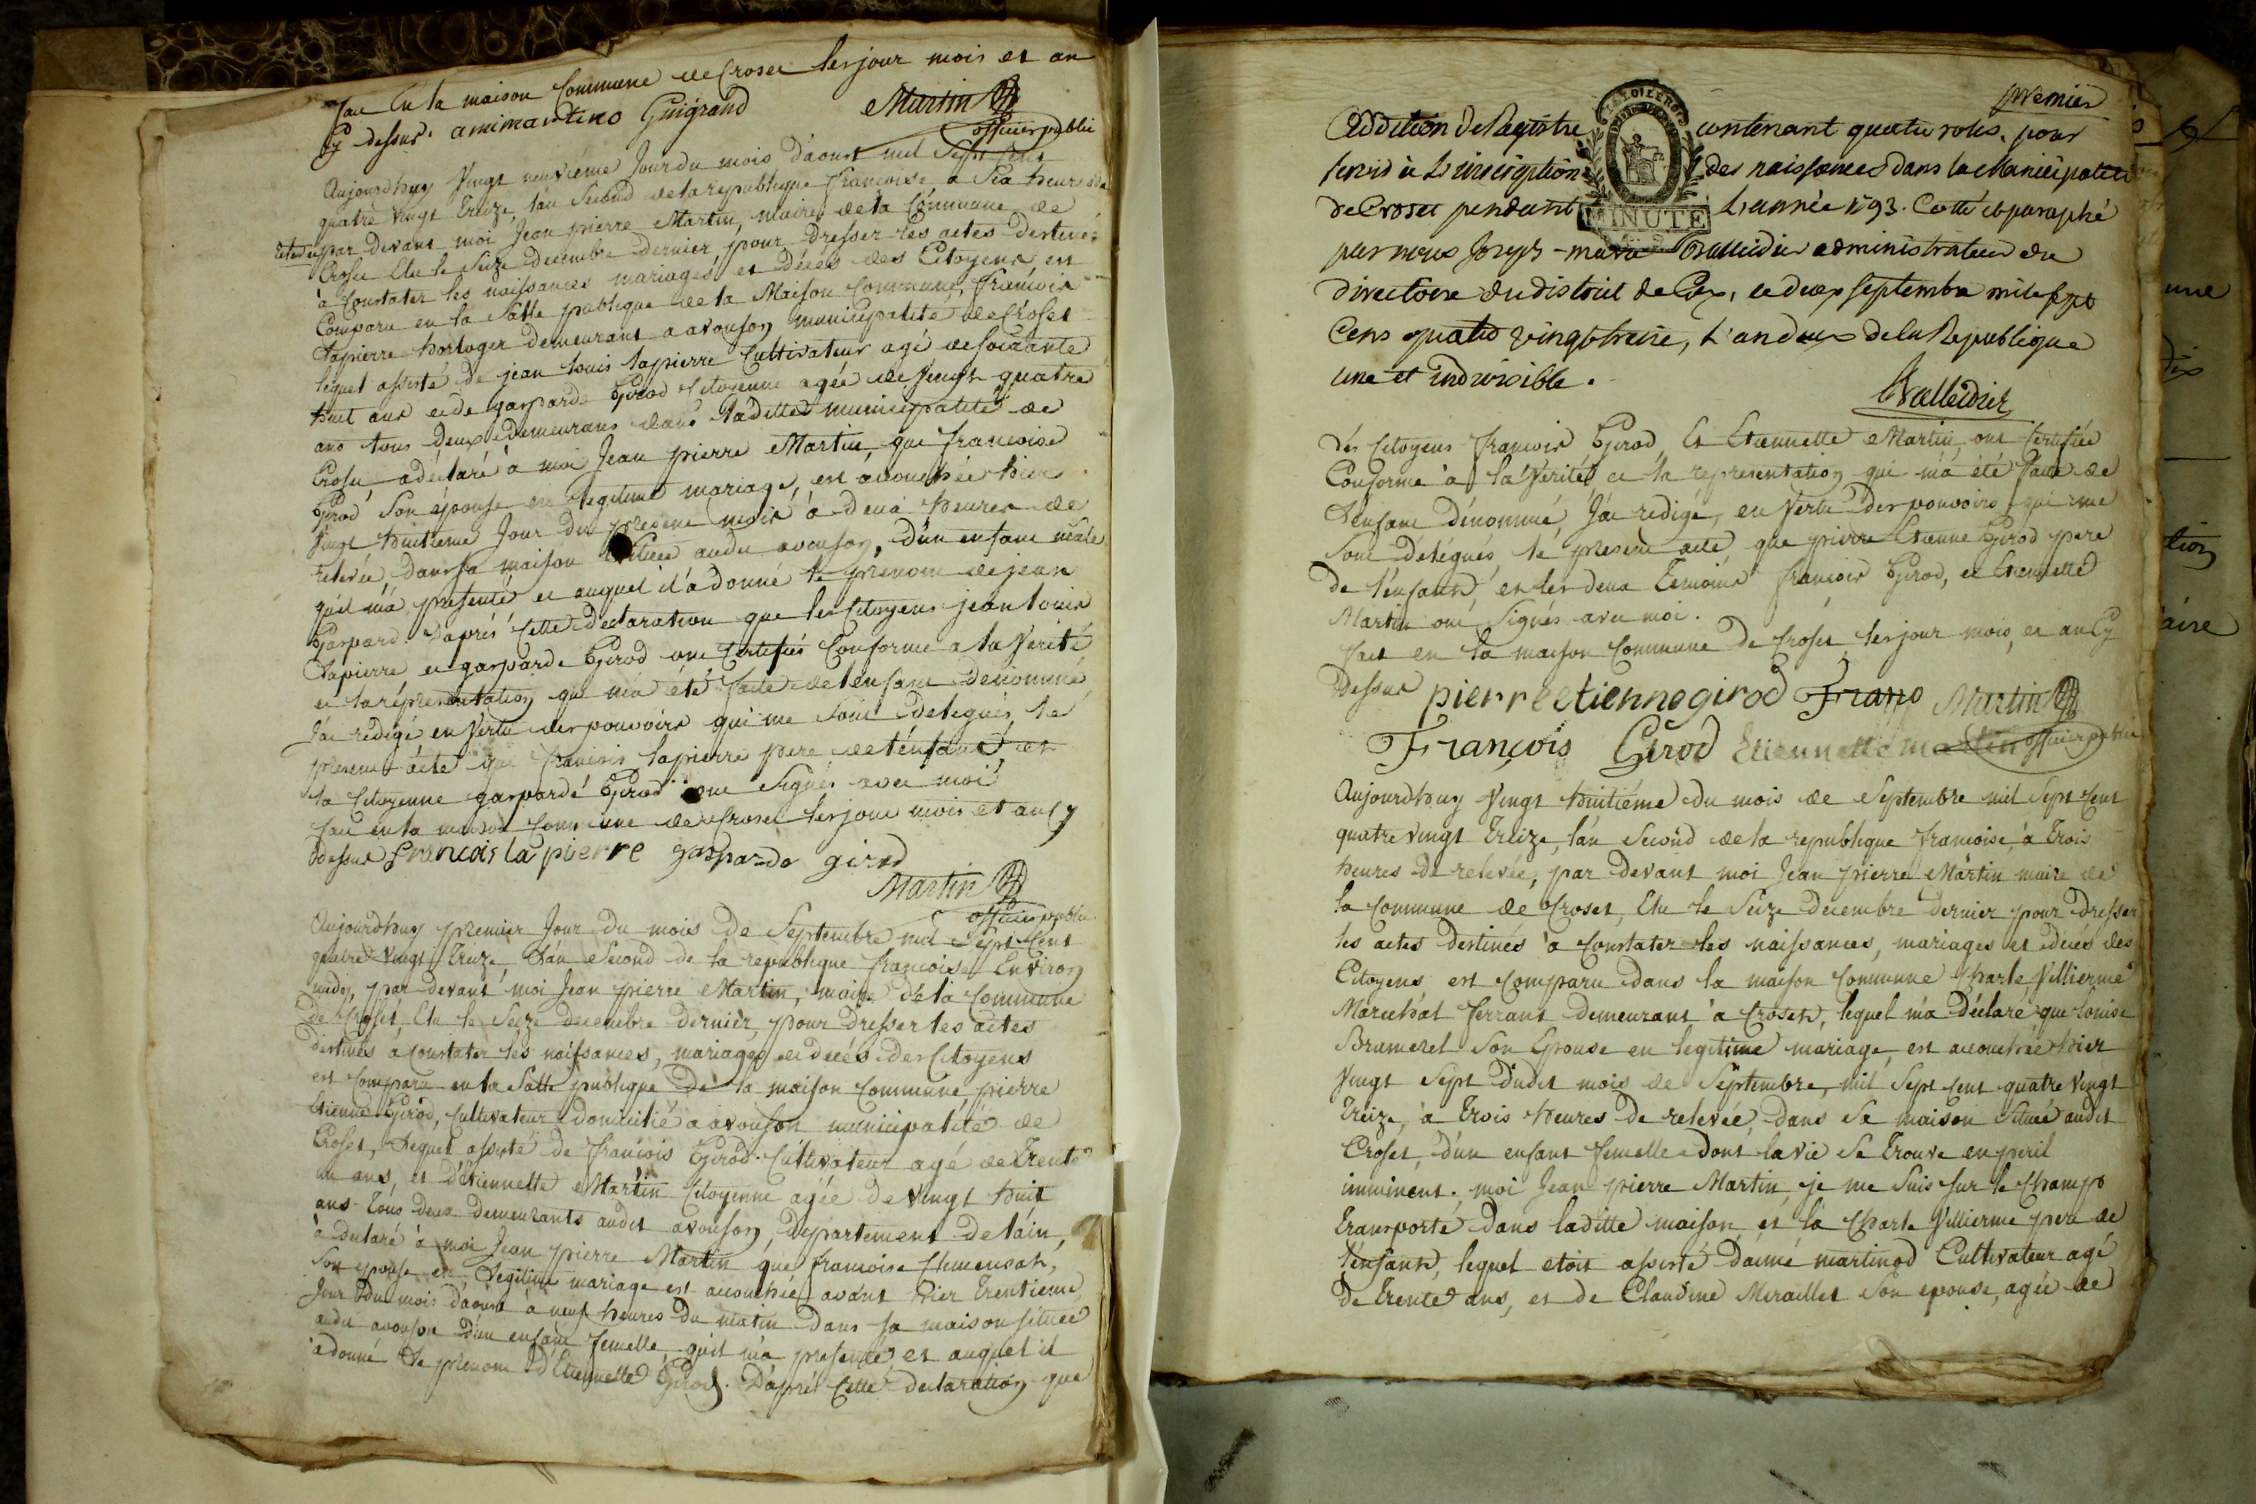 fait En la maison Commune de Crozet les jour mois et an
Cy dessus. Guigrand Martin
officier public
Aujourdhuy Vingt neuvième Jour du mois d'aoust mil Sept Cent
quatre Vingt Treize, l'an Second de la republique francoise à Six heures
par Devant moi Jean pierre Martin, maire de la Commune de
Croset Elu le Seize Decembre Dernier pour Dresser les actes Destinés
à Constater les naissances mariages et Décès des Citoyens est
Comparu en la Salle publique de la Maison Commune, francois
Lapierre horloger demeurant a avouson municipalité de Croset
lequel assisté de jean Louis Lapierre Cultivateur agé de soixante
huit ans et de gasparde Girod Citoyenne agée de Vingt quatre
ans tous deux demeurans dans Laditte municipalité de
Croset a déclaré à moi Jean pierre Martin, que francoise
Girod Son épouse en legitime mariage, est acouchée hier
Vingt huitieme Jour du present mois à deux heures de
relevée, dans sa maison Située audit avouson, d'un enfant mâle
qu'il m'a presenté et auquel il a donné le prenom de jean
Gaspard. D'aprés Cette déclaration que les Citoyens jean Louis
Lapierre et gasparde Girod ont Certifiés Conforme a la Vérité
et la répresentation qui m'a été faite de l'enfant Dénommé
J'ai redigé en Vertu des pouvoirs qui me Sont Delegués, le
present acte que francois lapierre pere de l'enfant et
la Citoyenne gasparde Girod ont Signés avec moi
fait en la maison Commune de Croset les jour mois et an Cy
dessus francois la pierre gasparde girod
Martin
officier public
Aujourdhuy premier Jour du mois de Septembre mil Sept Cent
quatre Vingt Treize L'an Second de la republique francoise Environ
midy, par devant moi Jean pierre Martin, maire de la Commune
de Croset, Elu le Seize decembre dernier, pour Dresser les actes
destinés à Constater les naissances, mariages et décés des Citoyens
est Comparu en la Salle publique de la maison Commune pierre
Etienne Girod, Cultivateur domicilié a avouson municipalité de
Croset, Lequel assisté de francois Girod Cultivateur agé de Trente
un ans, et d'Etiennette Martin Citoyenne agée de vingt huit
ans Tous deux demeurants audit avouson, Departement de l'ain,
à déclaré à moi Jean pierre Martin que francoise Clemensat,
Son epouse en Legitime mariage est acouchée avant hier Trentieme
Jour du mois d'aoust à neuf heures du matin dans sa maison située
audit avouson d'un enfant femelle qu'il m'a presenté et auquel il
a donné Le prenom d'Etiennette Girod. D'aprés Cette declaration que
premier
Addition de Registre contenant quatre roles. pour
servir à L'inscription des naissances dans la Municipalité
de Croset pendant L'année 1793. Cotté et paraphé
MINUTE
par nous Joseph-marie administrateur du
directoire du district de Gex, ce deux septembre mil sept
Cens quatre vingt treize, L'an deux de la Republique
une et indivisible.
Les Citoyens francois Girod, Et Etiennette Martin ont Certifiée
Conforme à la Vérité, et la representation qui m'a été faite de
L'enfant dénommé, J'ai redigé, en Vertu des pouvoirs qui me
Sont délégués, le present acte que pierre Etienne Girod pere
de l'enfant, et les deux Temoins francois Girod, et Etiennette
Martin ont Signés avec moi.
fait en la maison Commune de Croset, les jour mois, et an Cy
Dessus pierre etienne girod Franço Martin
François Girod Etiennette martin officier public
Aujourdhuy Vingt huitiéme du mois de Septembre mil Sept Cent
quatre Vingt Treize, l'an Second de la republique francoise, à Trois
heures de relevée, par devant moi Jean pierre Martin maire de
la Commune de Croset, Elu le Seize décembre dernier pour Dresser
les actes Destinés à Constater les naissances, mariages et décés des
Citoyens est Comparu dans la maison Commune Charle Villierme
Marechal ferrant demeurant à Croset, lequel m'a Déclaré que Louise
Brumerel Son Epouse en legitime mariage, est acouchée hier
Vingt Sept Dudit mois de Septembre, mil Sept Cent quatre Vingt
Treize, à Trois heures de relevée, dans Sa maison Située audit
Croset, d'un enfant femelle dont la vie Se Trouve en peril
imminent. moi Jean pierre Martin, je me Suis sur le Champs
Transporté dans laditte maison, et là Charle Villierme pere de
l'enfant, lequel etoit assisté d'aimé martinod Cultivateur agé
de Trente ans, et de Claudine Meraillet Son epouse, agée de